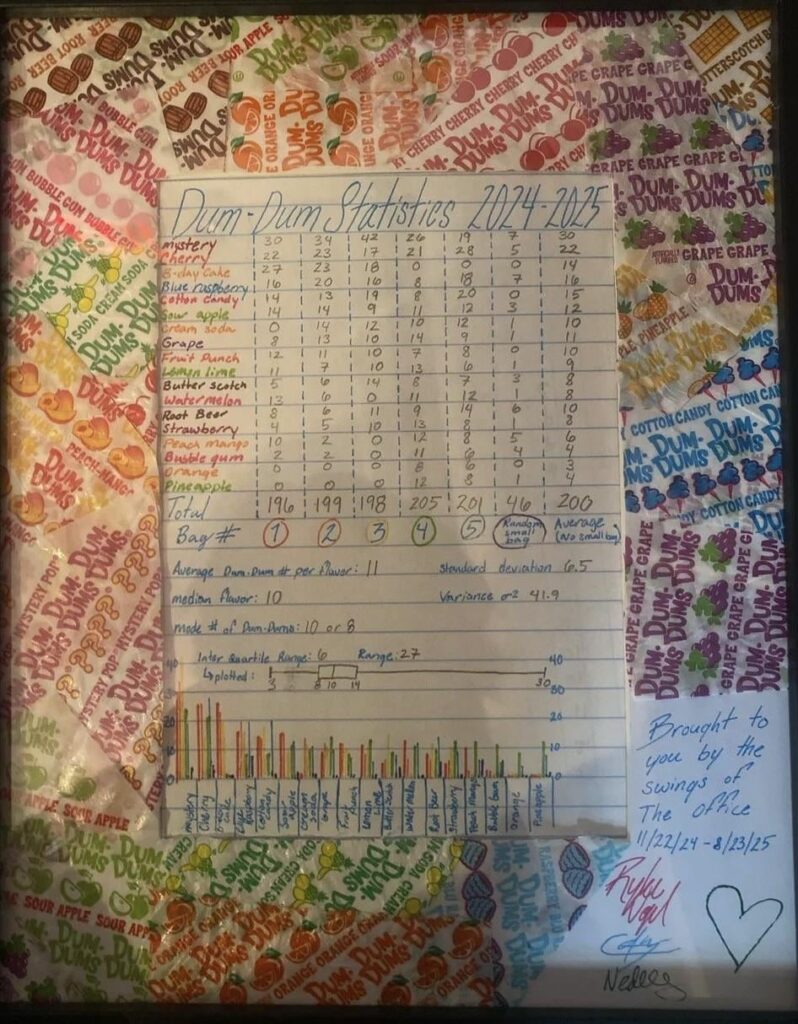 Dum-Dum Statistics 2024-2025
Mystery 30 34 42 26 19 7 30
Cherry 22 23 17 21 28 5 22
B-day Cake 27 23 18 0 0 0 14
Blue raspberry 16 20 16 8 18 7 16
Cotton candy 14 13 19 8 20 0 15
Sour apple 14 14 9 11 12 3 12
Cream soda 0 14 12 10 12 1 10
Grape 8 13 10 14 9 1 11
Fruit Punch 12 11 10 7 8 0 10
Lemon lime 11 7 10 13 6 1 9
Butter scotch 5 6 14 8 7 3 8
Watermelon 13 6 0 11 12 1 8
Root Beer 8 6 11 9 14 6 10
Strawberry 4 5 10 13 8 1 8
Peach mango 10 2 0 12 8 5 6
Bubble gum 2 2 0 11 6 4 4
Orange 0 0 0 8 6 0 3
Pineapple 0 0 0 12 8 1 4
Total 196 199 198 205 201 46 200
Bag # 1 2 3 4 5 Random small bag Average (no small bag)
Average Dum-Dum # per flavor: 11 Standard deviation 6.5
median flavor: 10 Variance σ² 41.9
mode # of Dum-Dums: 10 or 8
Inter Quartile Range: 6 Range: 27
↳plotted: 3 8 10 14 30
40 40
30
20
10 10
0 0
Mystery Cherry B-day Cake Blue Raspberry Cotton Candy Sour Apple Cream Soda Grape Fruit Punch Lemon lime Butter Scotch Water Melon Root Beer Strawberry Peach Mango Bubble Gum Orange Pineapple
Brought to
you by the
swings of
The office
11/22/24 - 8/23/25
ROOT BEER
DUM-DUMS
SOUR APPLE
ORANGE
CHERRY CHERRY CHERRY
GRAPE GRAPE GRAPE
BUTTERSCOTCH
BUBBLE GUM BUBBLE GUM
CREAM SODA
PINEAPPLE
COTTON CANDY COTTON CANDY
PEACH-MANGO
MYSTERY POP
SOUR APPLE SOUR APPLE
ORANGE ORANGE ORANGE